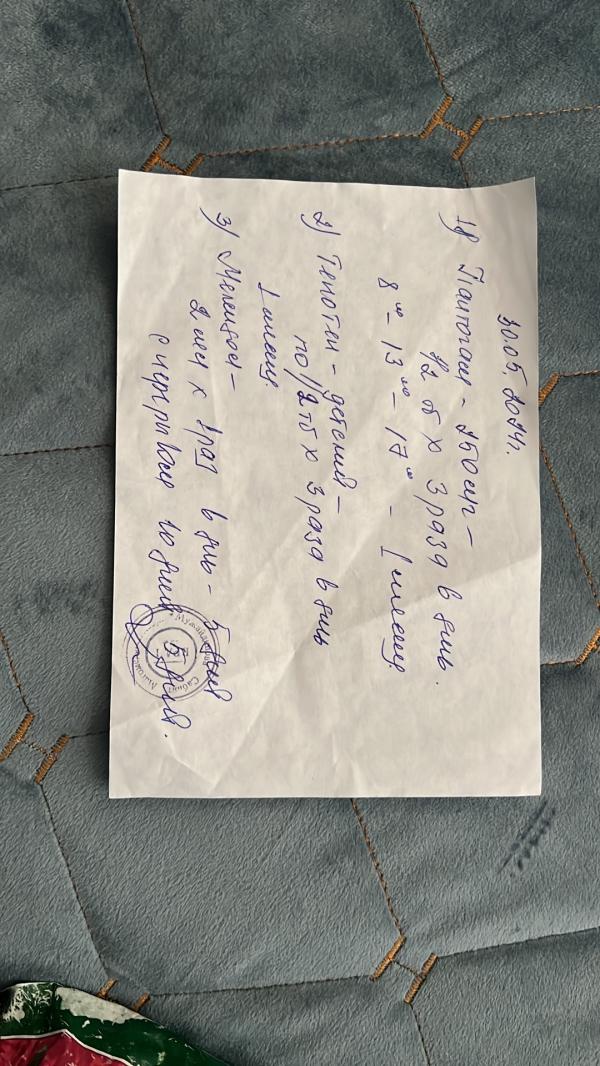 30.05.2024г.
1) Пантогам - 250мг -
1/2 тб х 3 раза в день.
8⁰⁰ - 13⁰⁰ - 17⁰⁰ - 1 месяц
2) Тенотен - детский -
по 1/2 тб х 3 раза в день
1 месяц
3)
2 мл х 1 раз в день - 5 дней
с перерывом 10 дней 5 дней.